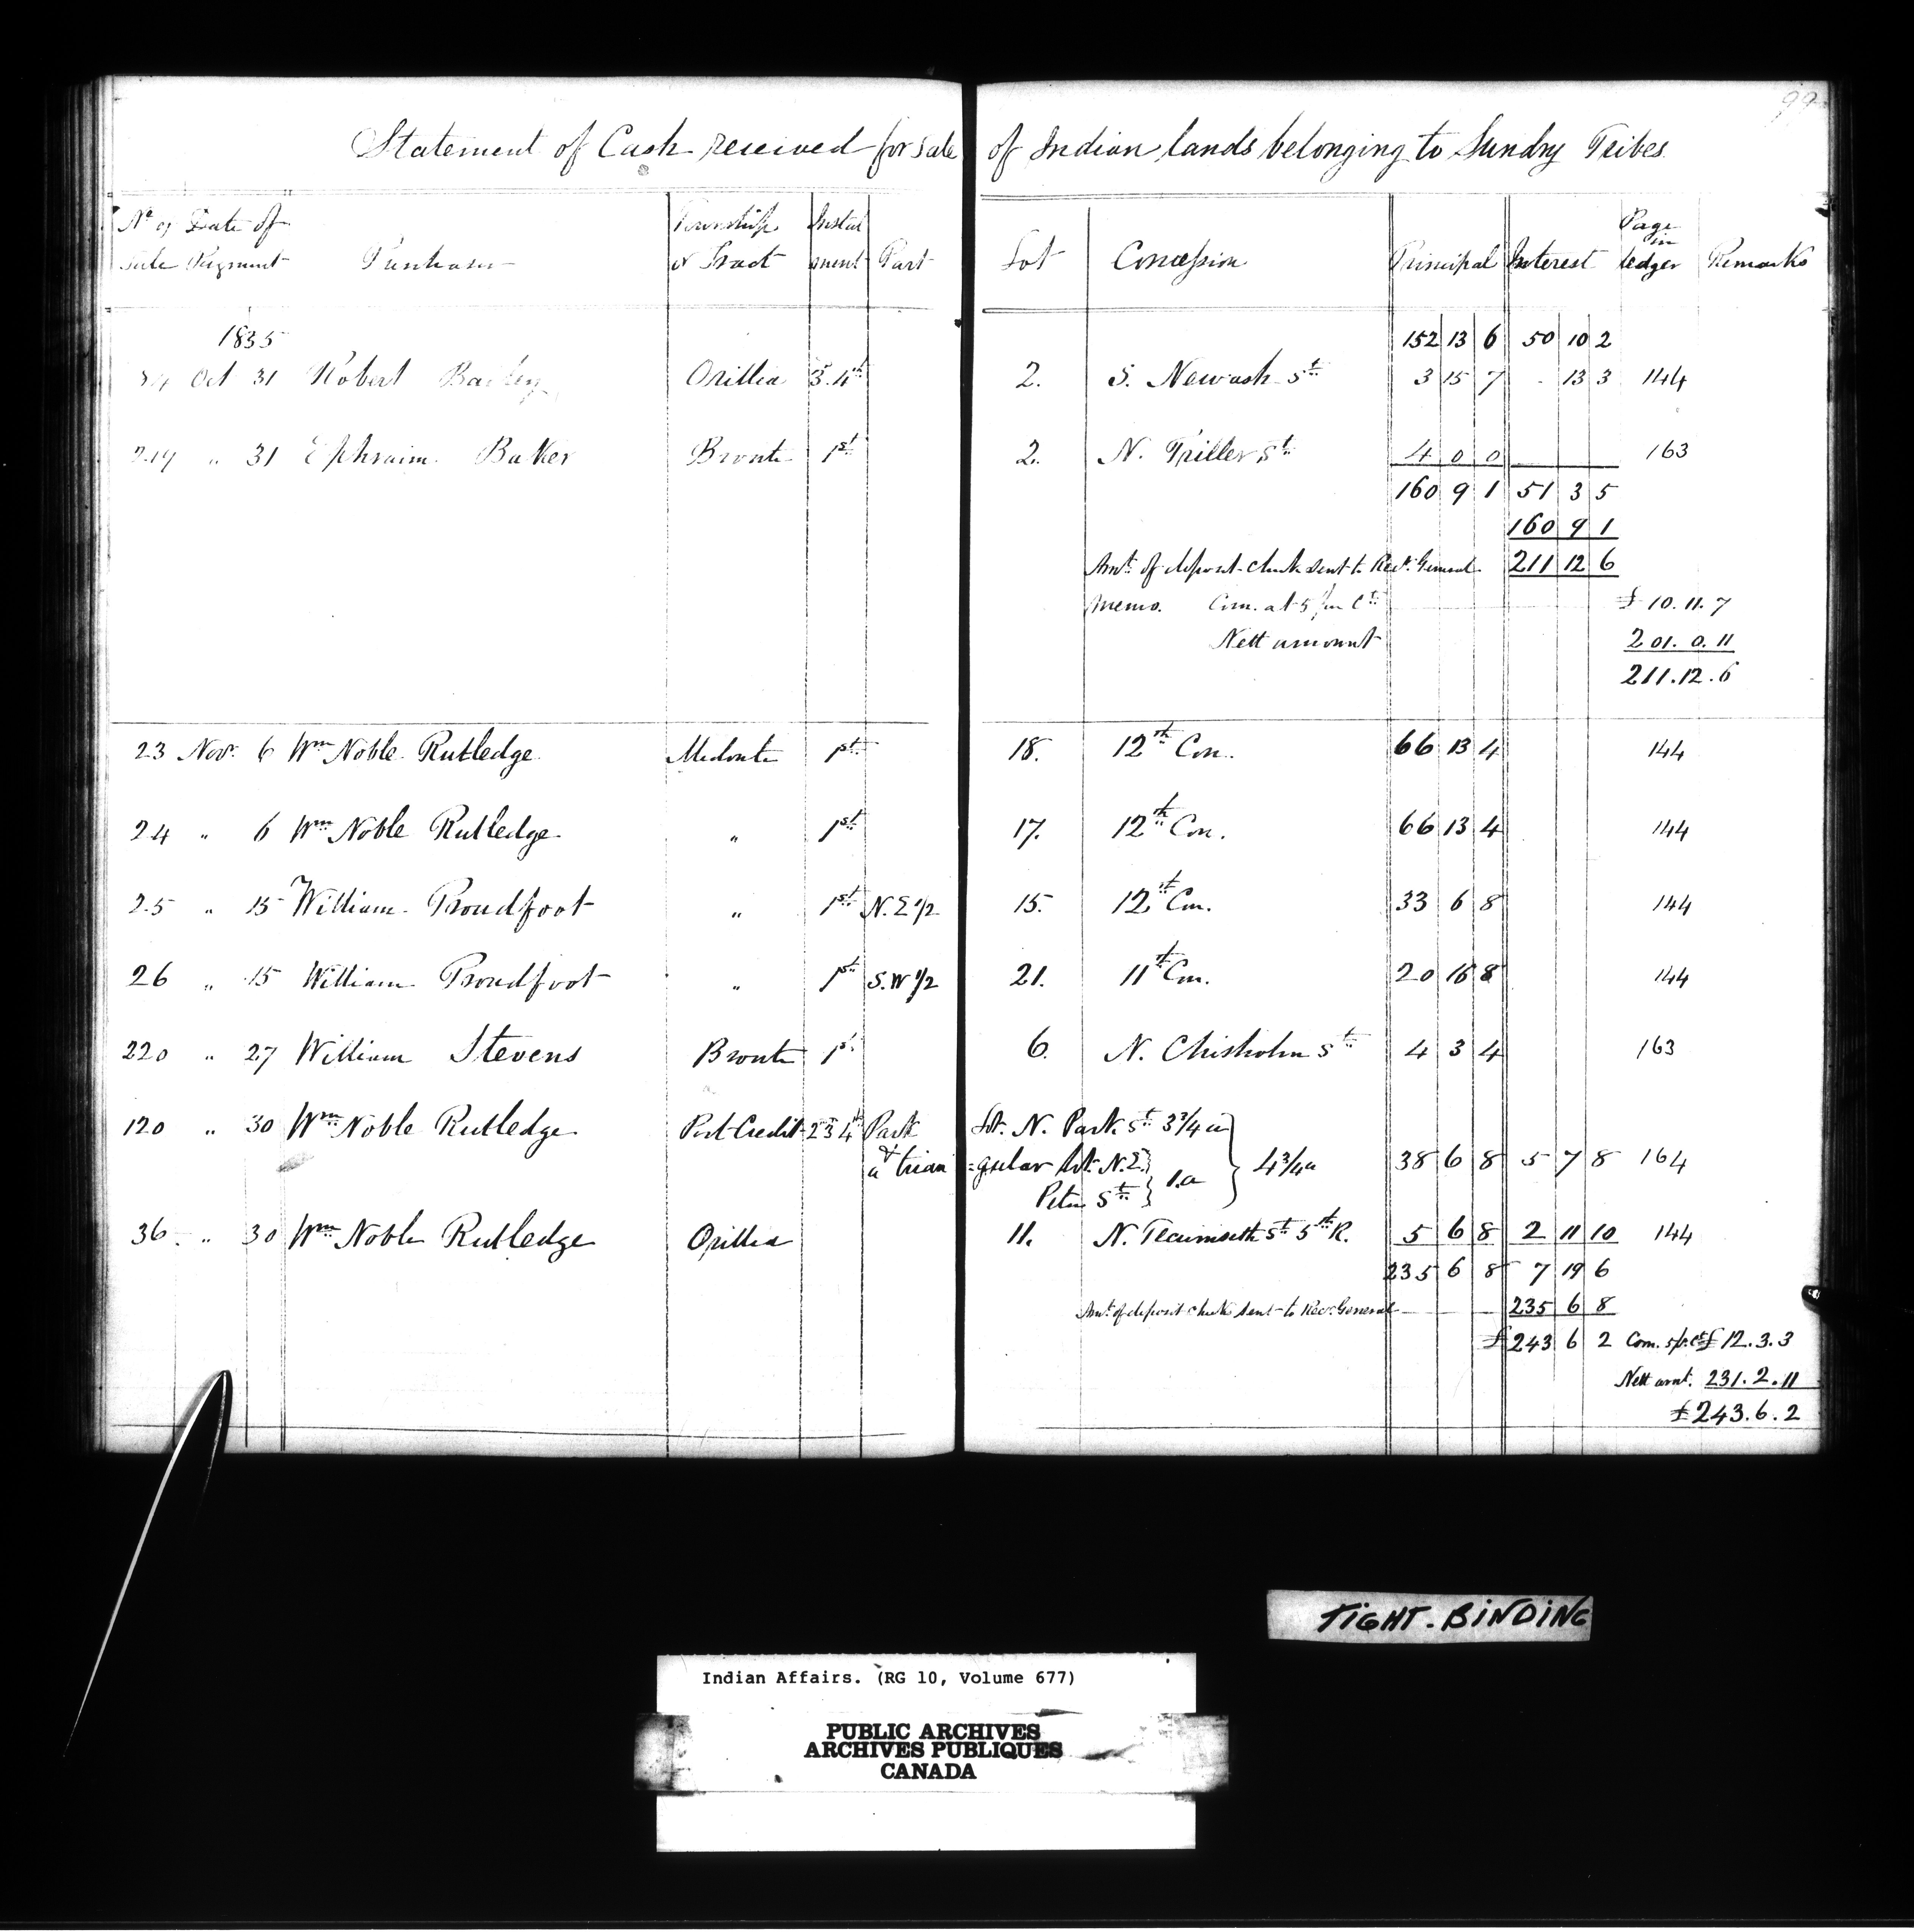 99
Statement of Cash received for sale of Indian lands belonging to Sundry Tribes
No of Sale Date of Payment Purchaser Township or Tract Instalment Part Lot Concession Principal Interest Page in ledger Remarks
1835 152 13 6 50 10 2
Oct 31 Robert Bailey Orillia 3.4th 2. S. Newash St 3 15 7 - 13 3 144
219 " 31 Ephraim Baker Bronte 1st 2. N. Triller St 4 0 0 163
160 9 1 51 3 5
160 9 1
Amt of deposit check sent to Recr General 211 12 6
Memo. Com. at 5 per Ct £ 10.11.7
Nett amount 201.0.11
211.12.6
23 Novr 6 Wm Noble Rutledge Medonte 1st 18. 12th Con. 66 13 4 144
24 " 6 Wm Noble Rutledge " 1st 17. 12th Con. 66 13 4 144
25 " 15 William Proudfoot " 1st N.E 1/2 15. 12th Con. 33 6 8 144
26 " 15 William Proudfoot " 1st S.W 1/2 21. 11th Con. 20 16 8 144
220 " 27 William Stevens Bronte 1st 6. N. Chisholm St 4 3 4 163
120 " 30 Wm Noble Rutledge Port Credit 2 3 4th Park Lot. N. Park St 3 3/4 a
& a trian=gular Lot N.E. 1.a 4 3/4 a 38 6 8 5 7 8 164
Peter St
36 " 30 Wm Noble Rutledge Orillia 11. N. Tecumseth St 5th R. 5 6 8 2 11 10 144
235 6 8 7 19 6
Amt of deposit check sent to Recr General 235 6 8
£ 243 6 2 Com. 5 p. Ct £ 12.3.3
Nett amt. 231.2.11
£ 243.6.2
TIGHT-BINDING
Indian Affairs. (RG 10, Volume 677)
PUBLIC ARCHIVES
ARCHIVES PUBLIQUES
CANADA